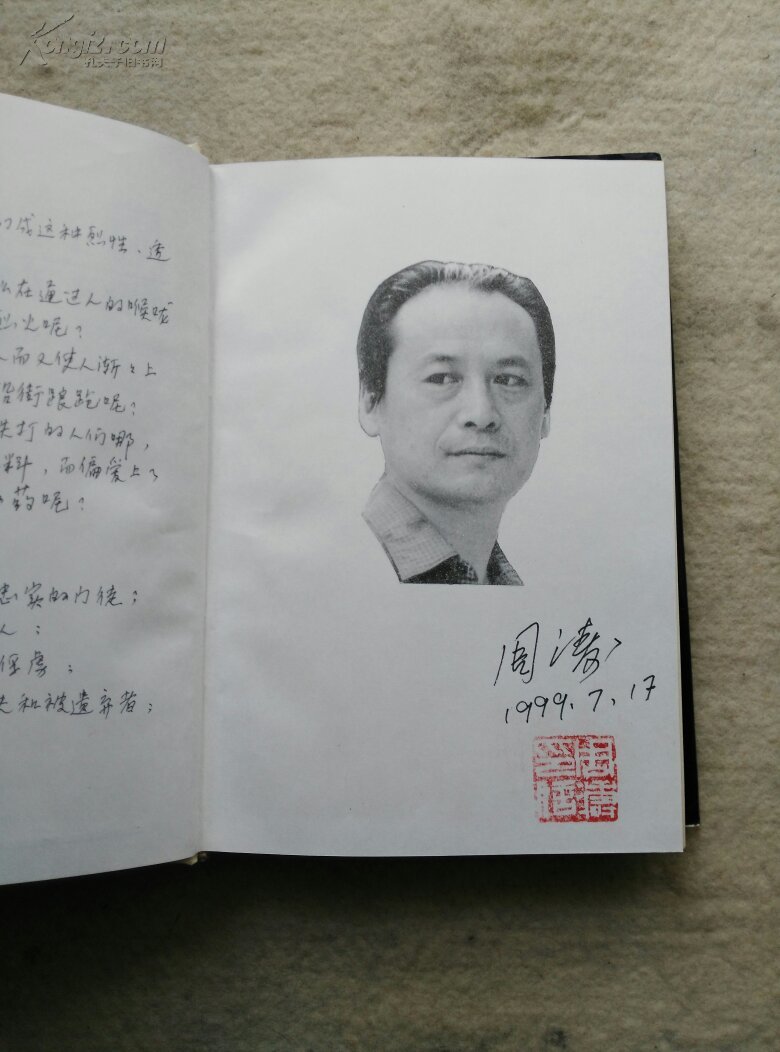 Kongfz.com
孔夫子旧书网
成这种烈性、透
在通过人的喉咙
火呢?
而又使人渐々上
沿街踉跄呢?
失打的人们哪,
料,而偏爱上
药呢?
忠实的门徒;
人;
俘虏;
和被遗弃者;
周涛
1999.7.17